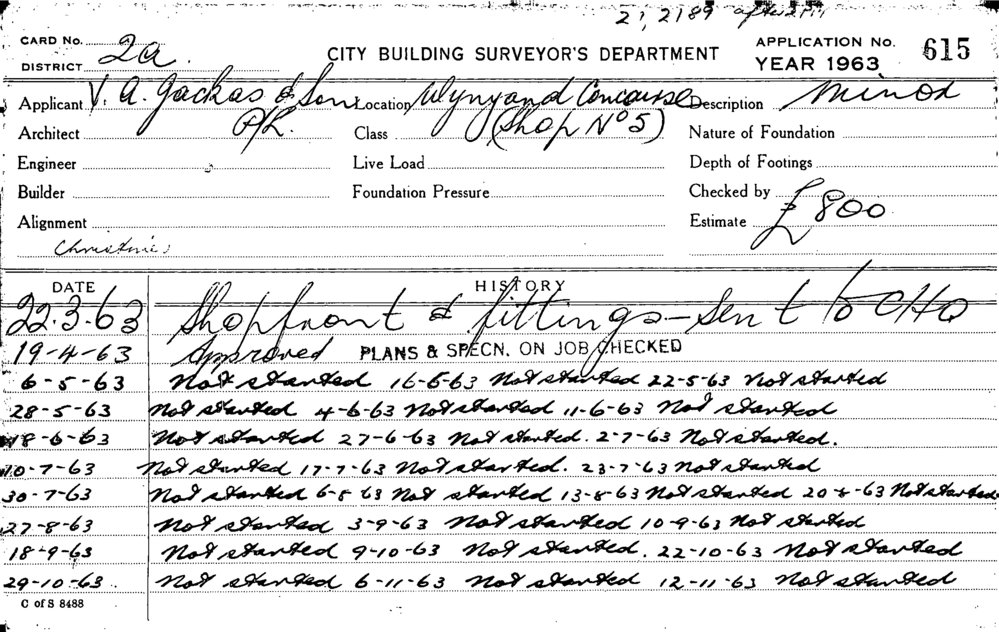 21, 2189 after 2 PM
CARD No. 2a. CITY BUILDING SURVEYOR'S DEPARTMENT APPLICATION No. 615
DISTRICT YEAR 1963
Applicant V. A. Jackas & Son Location Wynyard Concourse Description Minor
Architect P/L. Class (Shop No 5) Nature of Foundation
Engineer Live Load Depth of Footings
Builder Foundation Pressure Checked by
Alignment Estimate £800
Christines
DATE HISTORY
22.3.63 Shopfront & fittings - Sent to CHO
19-4-63 Approved PLANS & SPECN. ON JOB CHECKED
6-5-63 Not started 16-5-63 Not started 22-5-63 Not started
28-5-63 Not started 4-6-63 Not started 11-6-63 Not started
18-6-63 Not started 27-6-63 Not started. 2-7-63 Not started.
10-7-63 Not started 17-7-63 Not started. 23-7-63 Not started
30-7-63 Not started 6-8 63 Not started 13-8-63 Not started 20-8-63 Not started
27-8-63 Not started 3-9-63 Not started 10-9-63 Not started
18-9-63 Not started 9-10-63 Not started. 22-10-63 Not started
29-10-63 Not started 6-11-63 Not started 12-11-63 Not started
C of S 8488